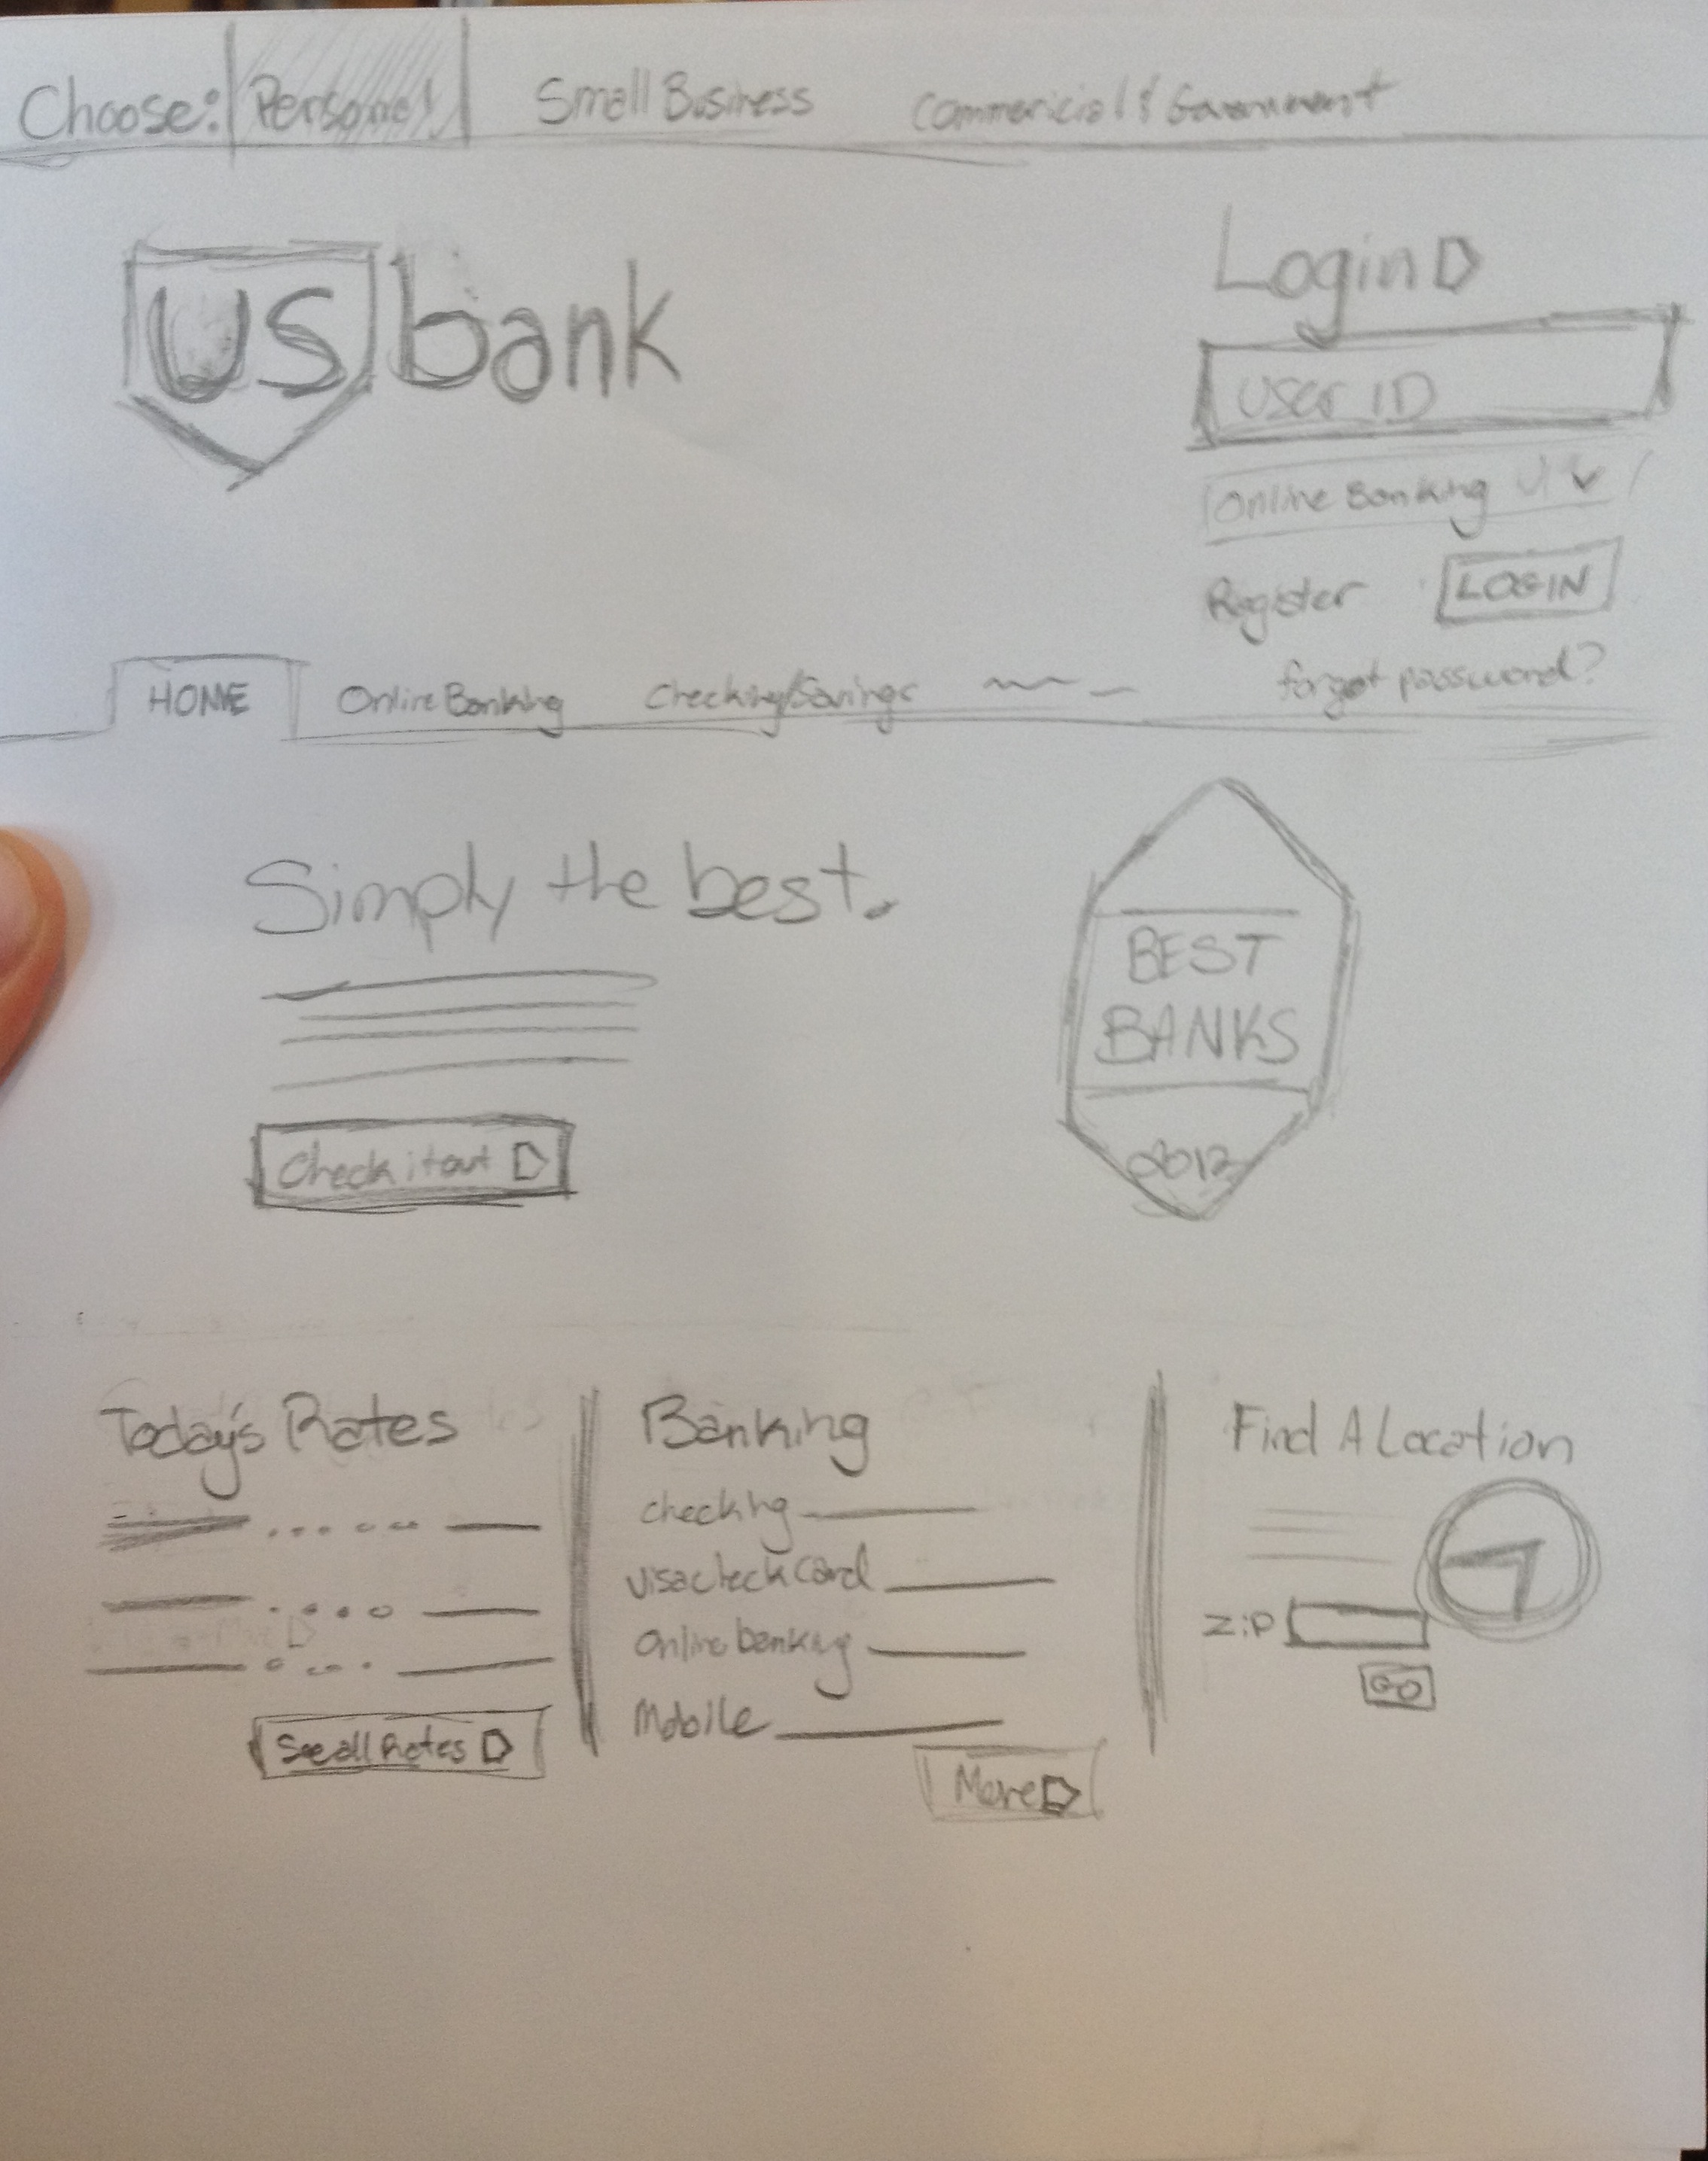 Choose: Personal Small Business Commericial & Government
US bank
Login
USER ID
Online Banking
Register LOGIN
forgot password?
HOME Online Banking Checking/Savings
Simply the best.
Check it out
BEST
BANKS
2012
Today's Rates
See all Rates
Banking
checking
visa check card
Online banking
Mobile
More
Find A Location
Zip
GO